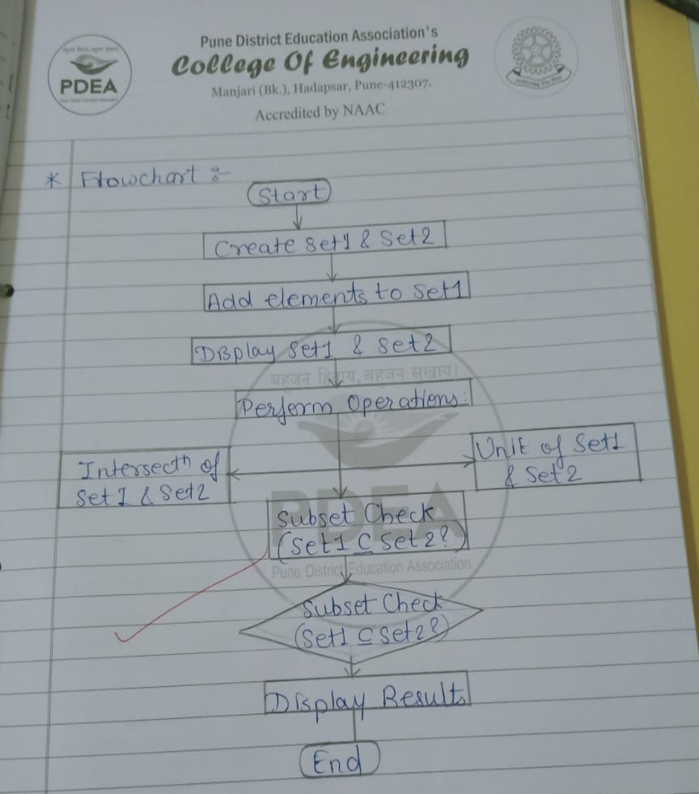 Pune District Education Association's
College Of Engineering
Manjari (Bk.), Hadapsar, Pune-412307.
Accredited by NAAC
PDEA
* Flowchart :-
Start
Create Set1 & Set2
Add elements to Set1
Display Set1 & Set2
बहुजन हिताय, बहुजन सुखाय।
Perform Operations:
Intersectn of
Set 1 & Set2
Unit of Set1
& Set2
PDEA
Subset Check
(Set1 ⊆ Set2?)
Pune District Education Association
Subset Check
(Set1 ⊆ Set2?)
Display Results
End